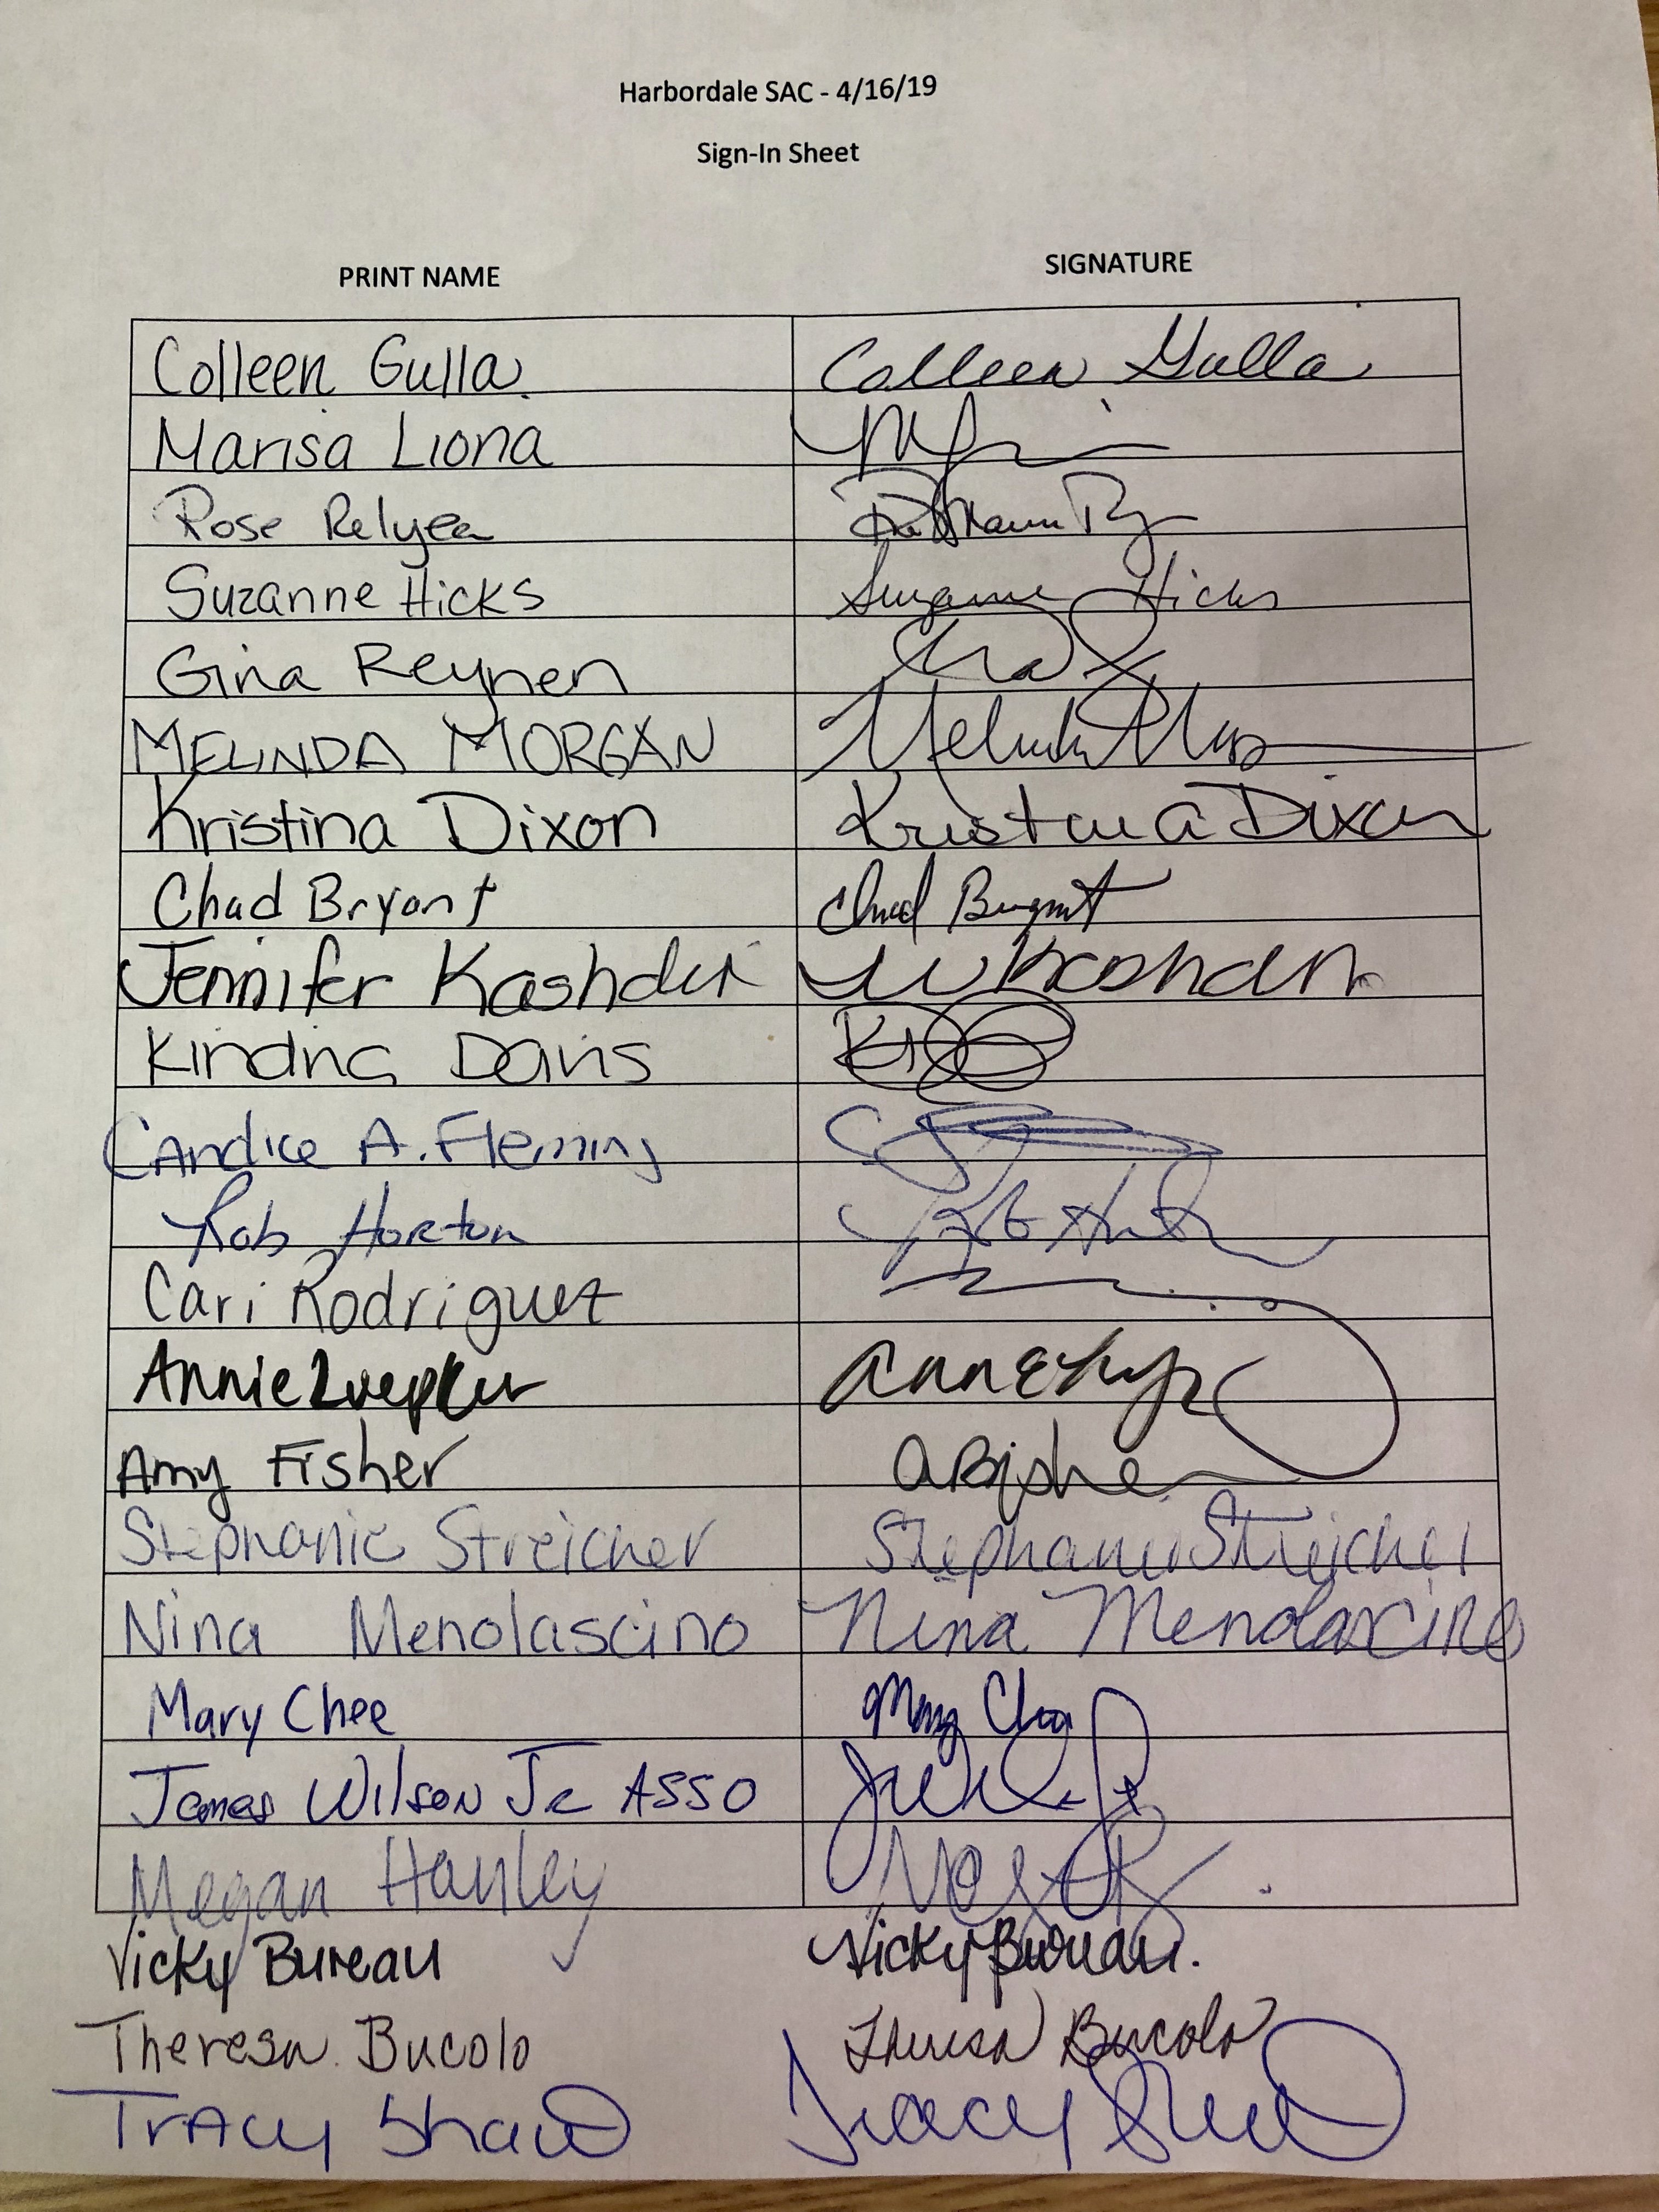 Harbordale SAC - 4/16/19
Sign-In Sheet
PRINT NAME SIGNATURE
Colleen Gulla Colleen Gulla
Marisa Liona
Rose Relyea
Suzanne Hicks Suzanne Hicks
Gina Reynen
MELINDA MORGAN Melinda
Kristina Dixon Kristina Dixon
Chad Bryant Chad Bryant
Jennifer
Davis
Candice A. Fleming
Rob Horton Rob
Cari Rodriguez
Annie
Amy Fisher
Stephanie Streicher Stephanie Streicher
Nina Menolascino Nina Menolascino
Mary Chee Mary Chee
James Wilson Jr ASSO
Megan Hanley
Vicky Bureau Vicky Bureau.
Theresa Bucolo Theresa Bucolo
Tracy Shaw Tracy Shaw